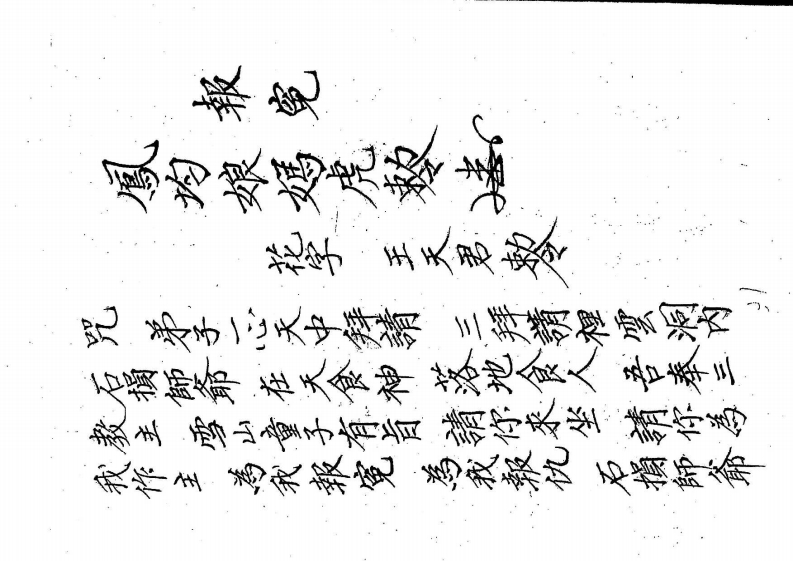 報冤
鳳均娘媽虎敕令
花字 王天君敕令
咒 弟子一心天中拜請 三拜請裡雲洞內
石損師爺 在天食神 落地食人 吾奉三
教主 雪山童子有旨 請你求坐 請你為
我作主 為我報冤 為我報仇 石損師爺